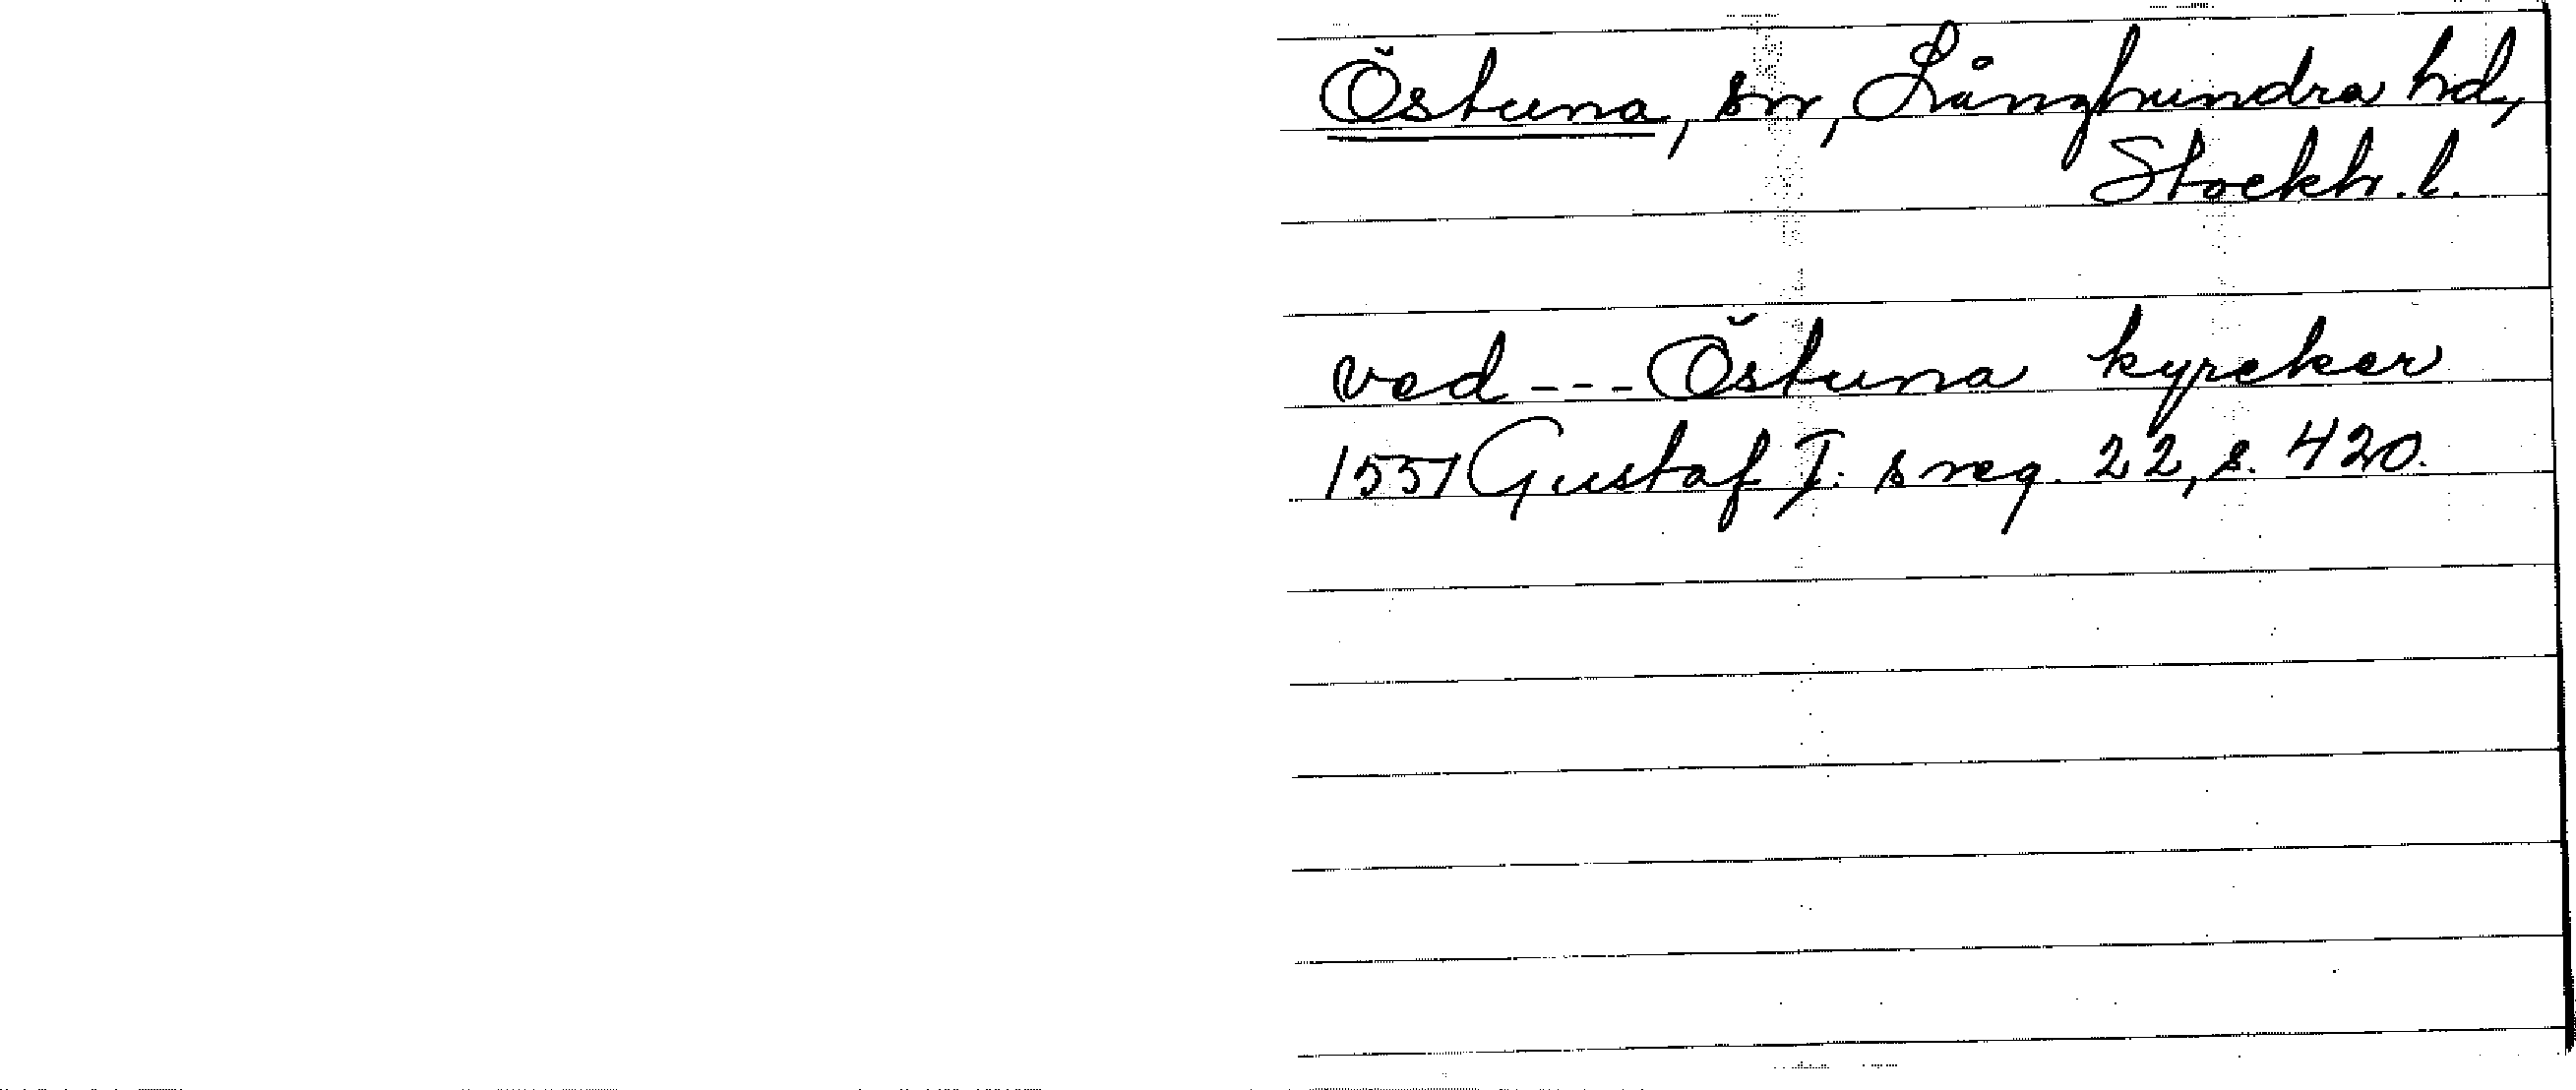 Östuna, sn, Långhundra hd,
Stockh. l.
ved --- Östuna kyrcker
1551 Gustaf I:s reg. 22, s. 420.